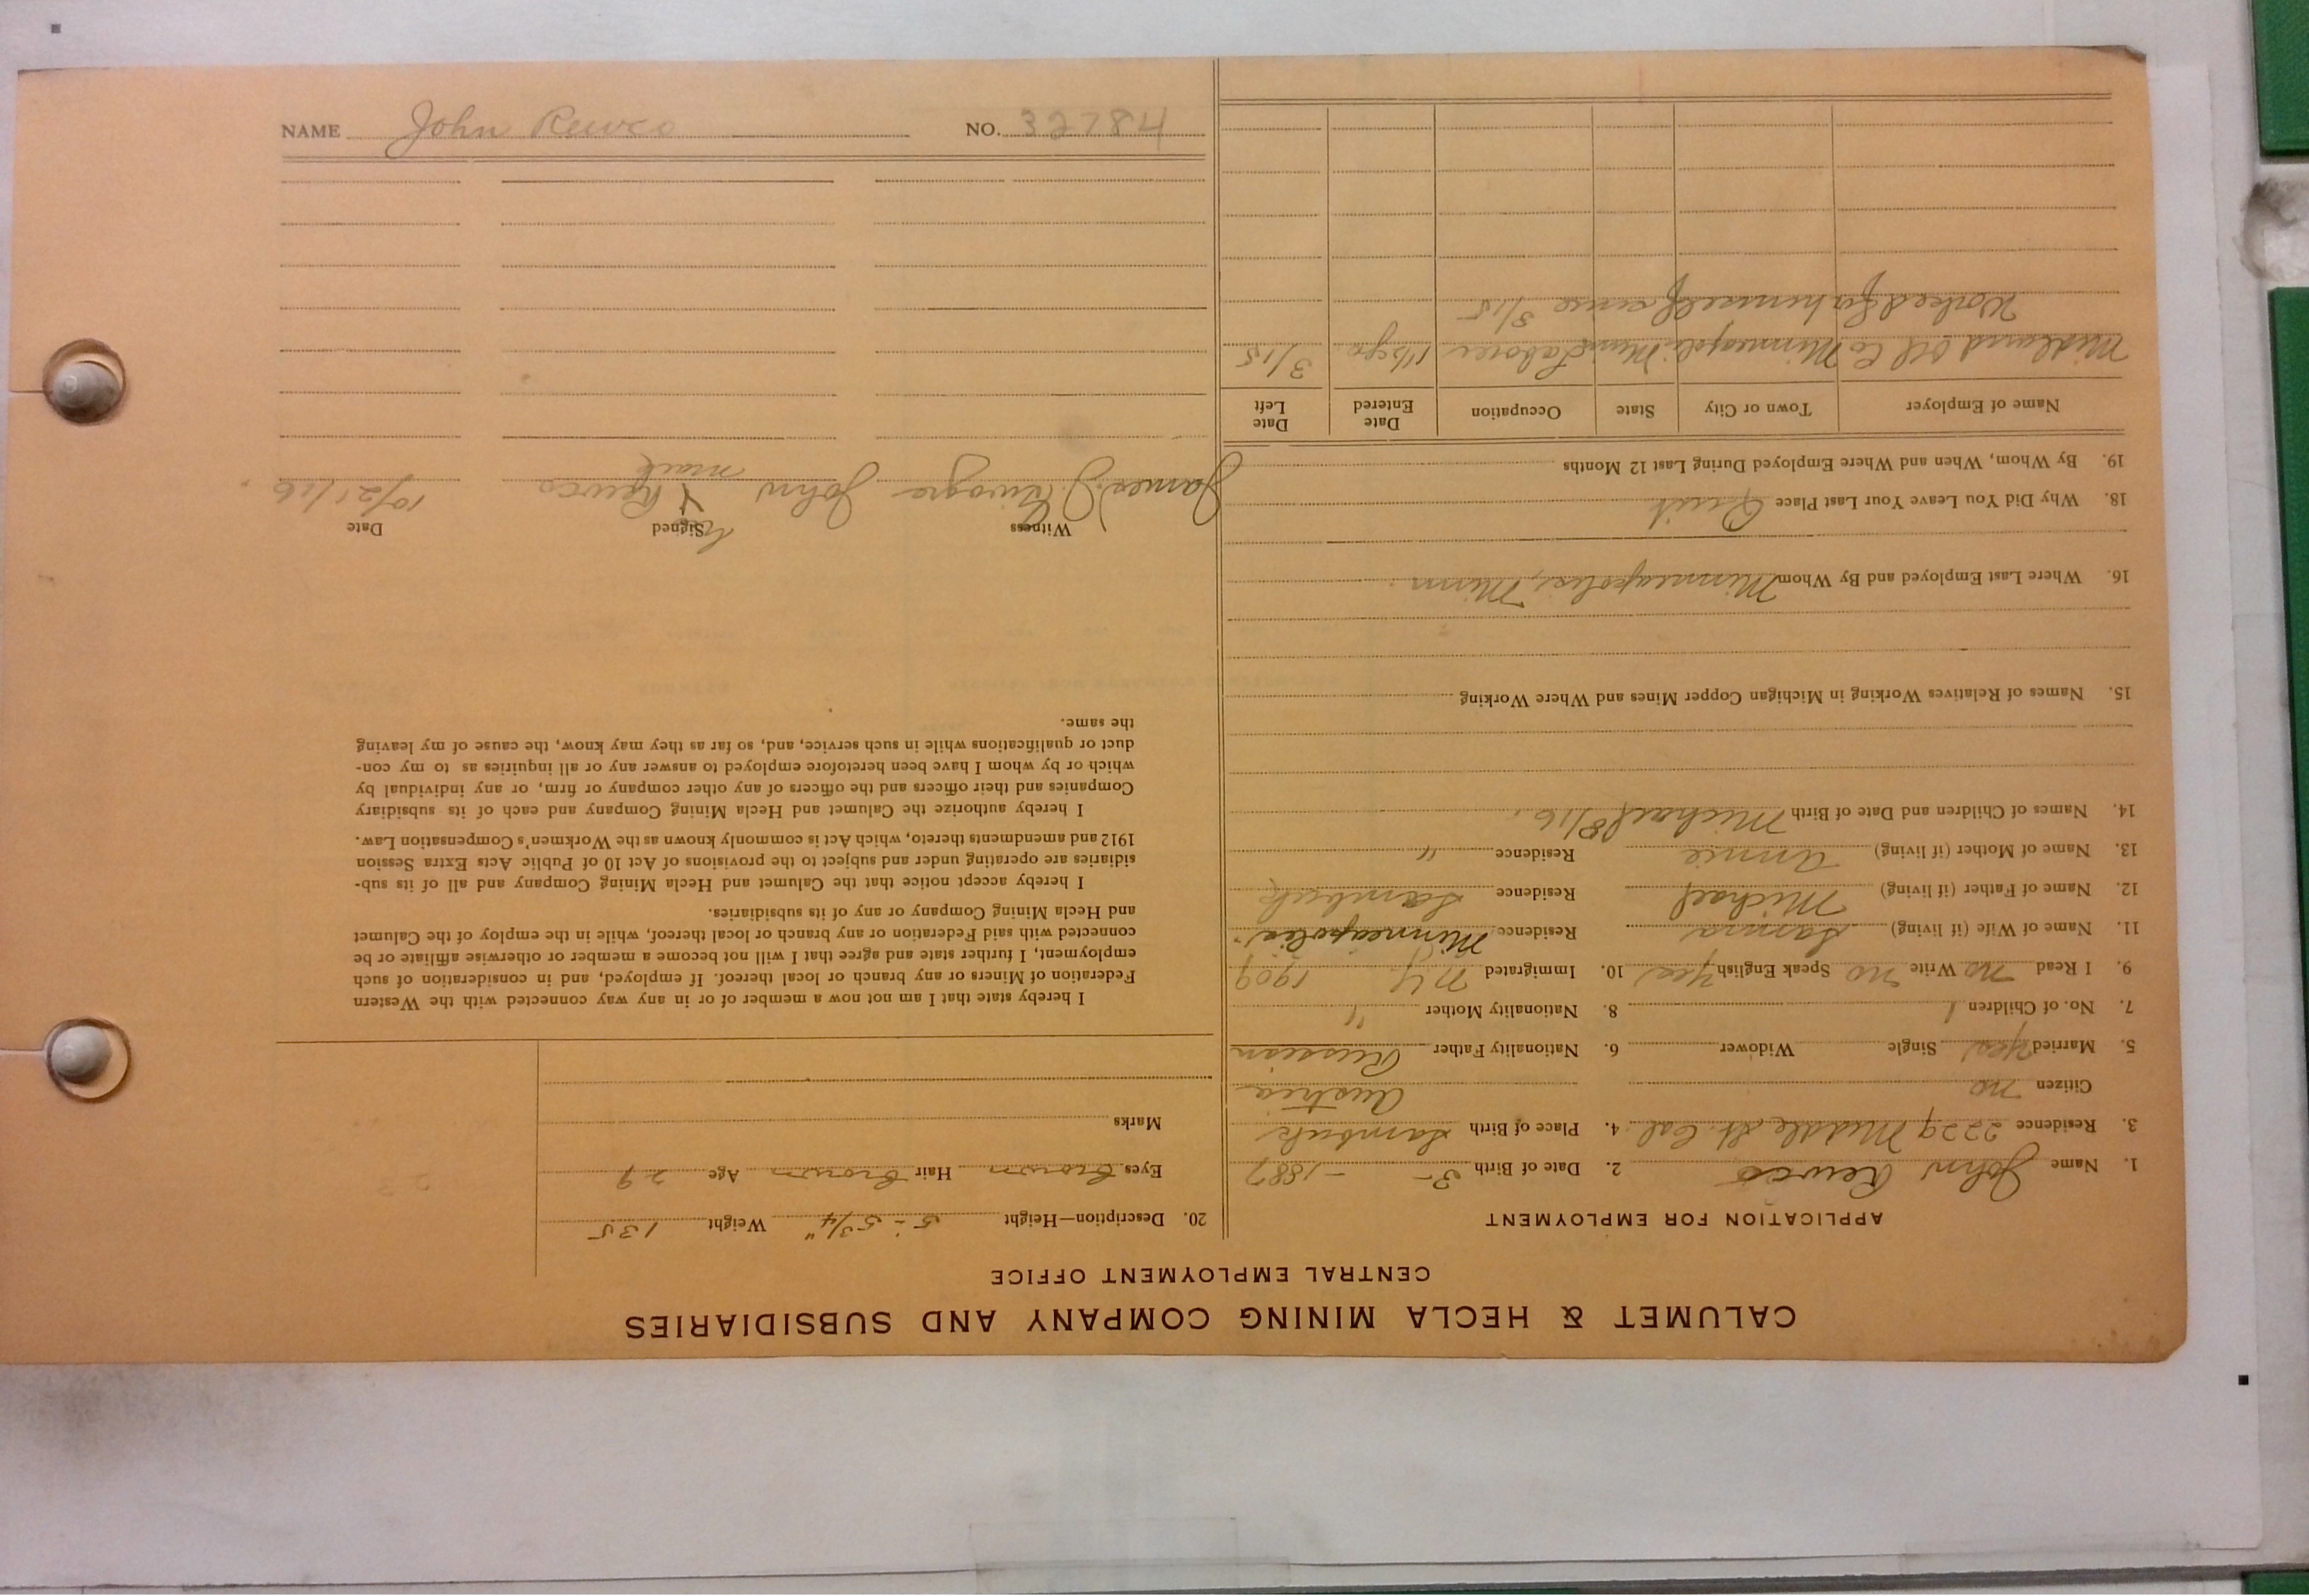 NAME John Rewco NO. 32784
CALUMET & HECLA MINING COMPANY AND SUBSIDIARIES
CENTRAL EMPLOYMENT OFFICE
APPLICATION FOR EMPLOYMENT
1. Name John Rewco 2. Date of Birth 3 - - 1887
3. Residence 2229 Middle St. Cal 4. Place of Birth Sambuk
Citizen no Austria
5. Married Yes Single Widower 6. Nationality Father Russian
7. No. of Children 1 8. Nationality Mother "
9. I Read no Write no Speak English Yes 10. Immigrated NY 1909
11. Name of Wife (if living) Residence Minneapolis.
12. Name of Father (if living) Michael Residence Sambuk
13. Name of Mother (if living) Annie Residence "
14. Names of Children and Date of Birth Michael 8/16.
15. Names of Relatives Working in Michigan Copper Mines and Where Working
16. Where Last Employed and By Whom Minneapolis, Minn
18. Why Did You Leave Your Last Place Quit
19. By Whom, When and Where Employed During Last 12 Months
Name of Employer Town or City State Occupation Date Entered Date Left
Midland Oil Co Minneapolis Minn Laborer 3/15
Worked for himself since 3/15
20. Description—Height 5'-5 3/4" Weight 135
Eyes Brown Hair Brown Age 29
Marks
I hereby state that I am not now a member of or in any way connected with the Western
Federation of Miners or any branch or local thereof. If employed, and in consideration of such
employment, I further state and agree that I will not become a member or otherwise affiliate or be
connected with said Federation or any branch or local thereof, while in the employ of the Calumet
and Hecla Mining Company or any of its subsidiaries.
I hereby accept notice that the Calumet and Hecla Mining Company and all of its sub-
sidiaries are operating under and subject to the provisions of Act 10 of Public Acts Extra Session
1912 and amendments thereto, which Act is commonly known as the Workmen's Compensation Law.
I hereby authorize the Calumet and Hecla Mining Company and each of its subsidiary
Companies and their officers and the officers of any other company or firm, or any individual by
which or by whom I have been heretofore employed to answer any or all inquiries as to my con-
duct or qualifications while in such service, and, so far as they may know, the cause of my leaving
the same.
Witness Signed Date
his
James John X Rewco 10/21/16.
mark